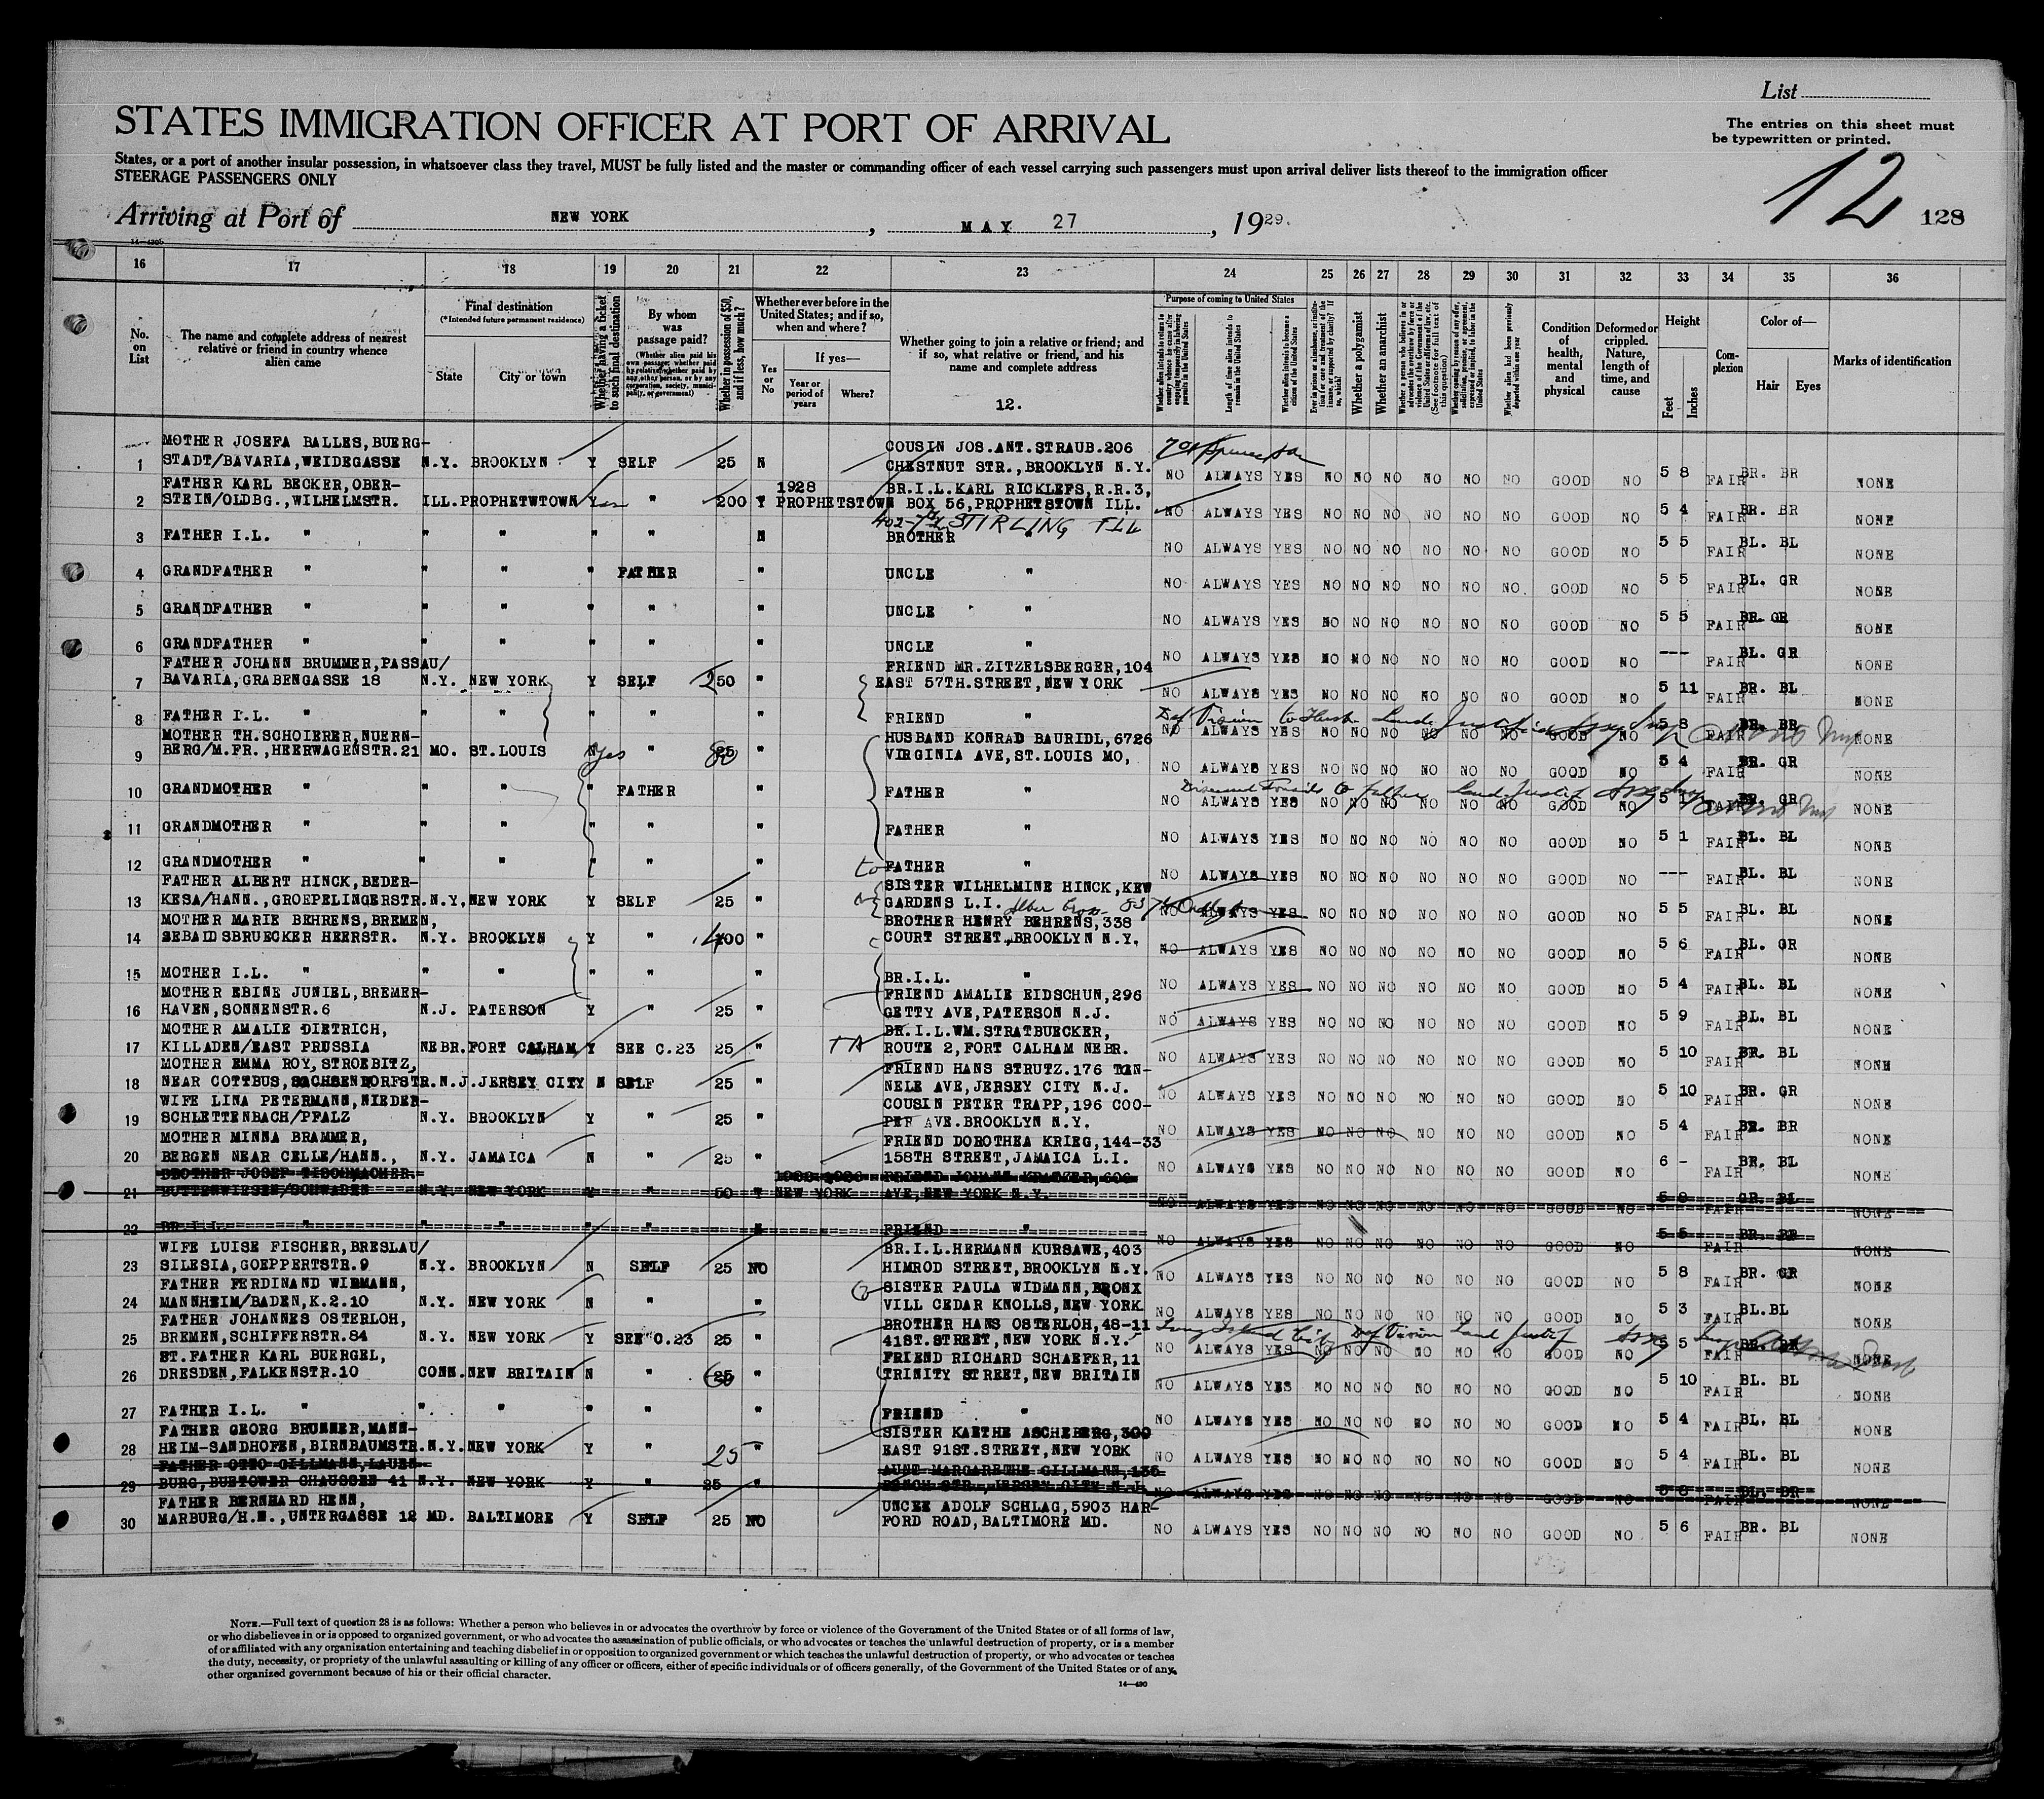 List
STATES IMMIGRATION OFFICER AT PORT OF ARRIVAL
The entries on this sheet must
be typewritten or printed.
States, or a port of another insular possession, in whatsoever class they travel, MUST be fully listed and the master or commanding officer of each vessel carrying such passengers must upon arrival deliver lists thereof to the immigration officer
STEERAGE PASSENGERS ONLY
12
128
Arriving at Port of NEW YORK, MAY 27, 1929.
16 17 18 19 20 21 22 23 24 25 26 27 28 29 30 31 32 33 34 35 36
No. on List
The name and complete address of nearest relative or friend in country whence alien came
Final destination
(*Intended future permanent residence)
State
City or town
Whether having a ticket to such final destination
By whom was passage paid?
Whether in possession of $50, and if less, how much?
Whether ever before in the United States; and if so, when and where?
Yes or No
If yes—
Year or period of years
Where?
Whether going to join a relative or friend; and if so, what relative or friend, and his name and complete address
12.
Purpose of coming to United States
Length of time alien intends to remain in the United States
Whether alien intends to become a citizen of the United States
Whether a polygamist
Whether an anarchist
Condition of health, mental and physical
Deformed or crippled. Nature, length of time, and cause
Height
Feet
Inches
Complexion
Color of—
Hair
Eyes
Marks of identification
MOTHER JOSEFA BALLES, BUERG- COUSIN JOS.ANT.STRAUB.206
1 STADT/BAVARIA, WEIDEGASSE N.Y. BROOKLYN Y SELF 25 N CHESTNUT STR., BROOKLYN N.Y. NO ALWAYS YES NO NO NO NO NO NO GOOD NO 5 8 FAIR BR. BR NONE
FATHER KARL BECKER, OBER- 1928 BR.I.L.KARL RICKLEFS, R.R.3,
2 STEIN/OLDBG., WILHELMSTR. ILL. PROPHETWTOWN Yes " 200 Y PROPHETSTOWN BOX 56, PROPHETSTOWN ILL. NO ALWAYS YES NO NO NO NO NO NO GOOD NO 5 4 FAIR BR. BR NONE
STIRLING ILL
3 FATHER I.L. " " " " " N BROTHER " NO ALWAYS YES NO NO NO NO NO NO GOOD NO 5 5 FAIR BL. BL NONE
4 GRANDFATHER " " " " FATHER " UNCLE " NO ALWAYS YES NO NO NO NO NO NO GOOD NO 5 5 FAIR BL. GR NONE
5 GRANDFATHER " " " " " " UNCLE " NO ALWAYS YES NO NO NO NO NO NO GOOD NO 5 5 FAIR BR. GR NONE
6 GRANDFATHER " " " " " " UNCLE " NO ALWAYS YES NO NO NO NO NO NO GOOD NO --- FAIR BL. GR NONE
FATHER JOHANN BRUMMER, PASSAU/ FRIEND MR.ZITZELSBERGER, 104
7 BAVARIA, GRABENGASSE 18 N.Y. NEW YORK Y SELF 250 " EAST 57TH.STREET, NEW YORK NO ALWAYS YES NO NO NO NO NO NO GOOD NO 5 11 FAIR BR. BL NONE
8 FATHER I.L. " " " " " " FRIEND " NO ALWAYS YES NO NO NO NO NO NO GOOD NO 5 8 FAIR BR. BR NONE
MOTHER TH.SCHOIERER, NUERN- HUSBAND KONRAD BAURIDL, 6726
9 BERG/M.FR., HEERWAGENSTR.21 MO. ST.LOUIS yes " VIRGINIA AVE, ST.LOUIS MO, NO ALWAYS YES NO NO NO NO NO NO GOOD NO 5 4 FAIR BR. GR NONE
10 GRANDMOTHER " " " " FATHER " FATHER " NO ALWAYS YES NO NO NO NO NO NO GOOD NO 5 1 FAIR BR. GR NONE
11 GRANDMOTHER " " " " " " FATHER " NO ALWAYS YES NO NO NO NO NO NO GOOD NO 5 1 FAIR BL. BL NONE
12 GRANDMOTHER " " " " " " to FATHER " NO ALWAYS YES NO NO NO NO NO NO GOOD NO --- FAIR BL. BL NONE
FATHER ALBERT HINCK, BEDER- SISTER WILHELMINE HINCK, KEW
13 KESA/HANN., GROEPELINGERSTR. N.Y. NEW YORK Y SELF 25 " GARDENS L.I. NO ALWAYS YES NO NO NO NO NO NO GOOD NO 5 5 FAIR BL. BL NONE
MOTHER MARIE BEHRENS, BREMEN, BROTHER HENRY BEHRENS, 338
14 SEBAIDSBRUECKER HEERSTR. N.Y. BROOKLYN Y " 400 " COURT STREET, BROOKLYN N.Y. NO ALWAYS YES NO NO NO NO NO NO GOOD NO 5 6 FAIR BL. GR NONE
15 MOTHER I.L. " " " " " " BR.I.L. " NO ALWAYS YES NO NO NO NO NO NO GOOD NO 5 4 FAIR BL. BL NONE
MOTHER EBINE JUNIEL, BREMER- FRIEND AMALIE EIDSCHUN, 296
16 HAVEN, SONNENSTR.6 N.J. PATERSON Y " 25 " GETTY AVE, PATERSON N.J. NO ALWAYS YES NO NO NO NO NO NO GOOD NO 5 9 FAIR BL. BL NONE
MOTHER AMALIE DIETRICH, BR.I.L.WM.STRATBUECKER,
17 KILLADEN/EAST PRUSSIA NEBR. FORT CALHAM Y SEE C.23 25 " ROUTE 2, FORT CALHAM NEBR. NO ALWAYS YES NO NO NO NO NO NO GOOD NO 5 10 FAIR BR. BL NONE
MOTHER EMMA ROY, STROEBITZ, FRIEND HANS STRUTZ.176 TON-
18 NEAR COTTBUS, SACHSENDORFSTR. N.J. JERSEY CITY N SELF 25 " NELE AVE, JERSEY CITY N.J. NO ALWAYS YES NO NO NO NO NO NO GOOD NO 5 10 FAIR BR. GR NONE
WIFE LINA PETERMANN, NIEDER- COUSIN PETER TRAPP, 196 COO-
19 SCHLETTENBACH/PFALZ N.Y. BROOKLYN Y " 25 " PER AVE.BROOKLYN N.Y. NO ALWAYS YES NO NO NO NO NO NO GOOD NO 5 4 FAIR BR. BR NONE
MOTHER MINNA BRAMMER, FRIEND DOROTHEA KRIEG, 144-33
20 BERGEN NEAR CELLE/HANN., N.Y. JAMAICA N " 25 " 158TH STREET, JAMAICA L.I. NO ALWAYS YES NO NO NO NO NO NO GOOD NO 6 - FAIR BR. BL NONE
BROTHER JOSEF TISCHMACHER
21 BUTTENWIESEN/SCHWABEN N.Y. NEW YORK Y " 50 Y NEW YORK AVE, NEW YORK N.Y. NO ALWAYS YES NO NO NO NO NO NO GOOD NO 5 9 FAIR GR. BL NONE
22 BR.I.L. " " " " " N FRIEND " NO ALWAYS YES NO NO NO NO NO NO GOOD NO 5 5 FAIR BR. BR NONE
WIFE LUISE FISCHER, BRESLAU/ BR.I.L.HERMANN KURSAWE, 403
23 SILESIA, GOEPPERTSTR.9 N.Y. BROOKLYN N SELF 25 NO HIMROD STREET, BROOKLYN N.Y. NO ALWAYS YES NO NO NO NO NO NO GOOD NO 5 8 FAIR BR. GR NONE
FATHER FERDINAND WIDMANN, SISTER PAULA WIDMANN, BRONX
24 MANNHEIM/BADEN, K.2.10 N.Y. NEW YORK N " " VILL CEDAR KNOLLS, NEW YORK NO ALWAYS YES NO NO NO NO NO NO GOOD NO 5 3 FAIR BL. BL NONE
FATHER JOHANNES OSTERLOH, BROTHER HANS OSTERLOH, 48-11
25 BREMEN, SCHIFFERSTR.84 N.Y. NEW YORK Y SEE C.23 25 " 41ST.STREET, NEW YORK N.Y. Long Island City NO ALWAYS YES NO NO NO NO NO NO GOOD NO 5 5 FAIR NONE
ST.FATHER KARL BUERGEL, FRIEND RICHARD SCHAEFER, 11
26 DRESDEN, FALKENSTR.10 CONN. NEW BRITAIN N " " TRINITY STREET, NEW BRITAIN NO ALWAYS YES NO NO NO NO NO NO GOOD NO 5 10 FAIR BL. BL NONE
27 FATHER I.L. " " " " " " FRIEND " NO ALWAYS YES NO NO NO NO NO NO GOOD NO 5 4 FAIR BL. BL NONE
FATHER GEORG BRUNNER, MANN- SISTER KAETHE ASCHEBERG, 300
28 HEIM-SANDHOFEN, BIRNBAUMSTR. N.Y. NEW YORK Y " 25 " EAST 91ST.STREET, NEW YORK NO ALWAYS YES NO NO NO NO NO NO GOOD NO 5 4 FAIR BL. BL NONE
FATHER OTTO GILLMANN, LAUEN- AUNT MARGARETHE GILLMANN, 136
29 BURG, BUETOWER CHAUSSEE 41 N.Y. NEW YORK Y " 25 " STR., JERSEY CITY N.J. NO ALWAYS YES NO NO NO NO NO NO GOOD NO FAIR BL. BR NONE
FATHER BERNHARD HENN, UNCLE ADOLF SCHLAG, 5903 HAR-
30 MARBURG/H.N., UNTERGASSE 12 MD. BALTIMORE Y SELF 25 NO FORD ROAD, BALTIMORE MD. NO ALWAYS YES NO NO NO NO NO NO GOOD NO 5 6 FAIR BR. BL NONE
NOTE.—Full text of question 28 is as follows: Whether a person who believes in or advocates the overthrow by force or violence of the Government of the United States or of all forms of law,
or who disbelieves in or is opposed to organized government, or who advocates the assassination of public officials, or who advocates or teaches the unlawful destruction of property, or is a member
of or affiliated with any organization entertaining and teaching disbelief in or opposition to organized government or which teaches the unlawful destruction of property, or who advocates or teaches
the duty, necessity, or propriety of the unlawful assaulting or killing of any officer or officers, either of specific individuals or of officers generally, of the Government of the United States or of any
other organized government because of his or their official character.
14—490